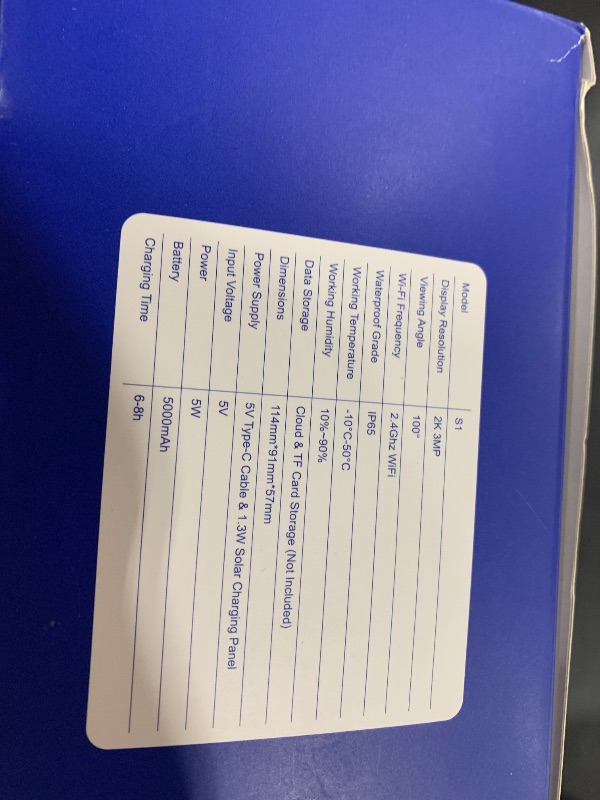 Model S1
Display Resolution 2K 3MP
Viewing Angle 100°
Wi-Fi Frequency 2.4Ghz WiFi
Waterproof Grade IP65
Working Temperature -10°C-50°C
Working Humidity 10%~90%
Data Storage Cloud & TF Card Storage (Not Included)
Dimensions 114mm*91mm*57mm
Power Supply 5V Type-C Cable & 1.3W Solar Charging Panel
Input Voltage 5V
Power 5W
Battery 5000mAh
Charging Time 6-8h